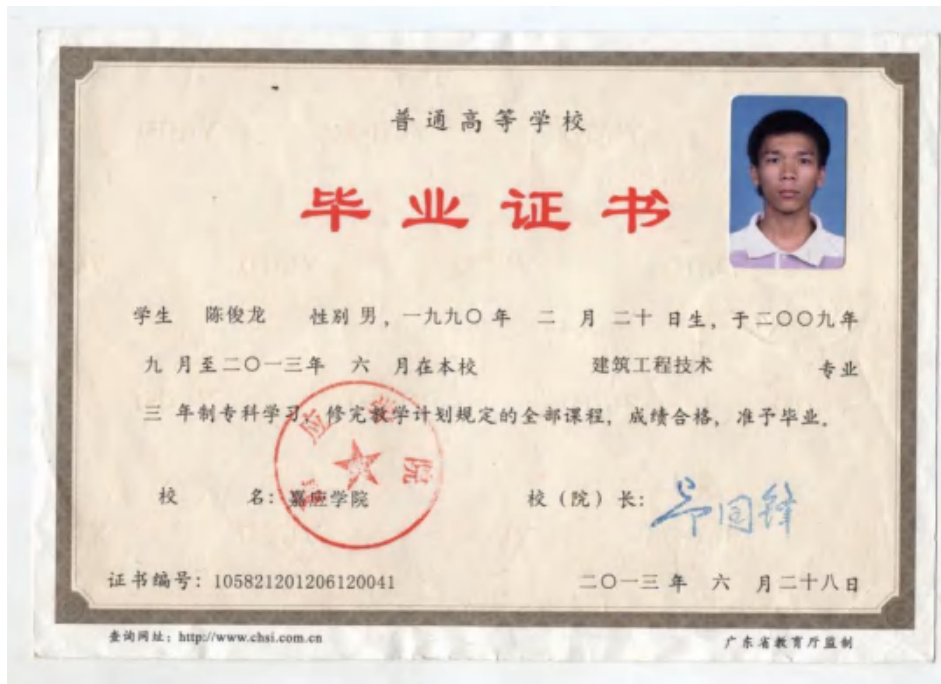 普通高等学校
毕业证书
学生 陈俊龙 性别 男，一九九〇年 二 月 二十 日生，于二〇〇九年
九 月至二〇一三年 六 月在本校 建筑工程技术 专业
三 年制专科学习，修完教学计划规定的全部课程，成绩合格，准予毕业。
校 名：嘉应学院 校（院）长：
应学院
证书编号：105821201206120041 二〇一三年 六 月二十八日
查询网址：http://www.chsi.com.cn 广东省教育厅监制